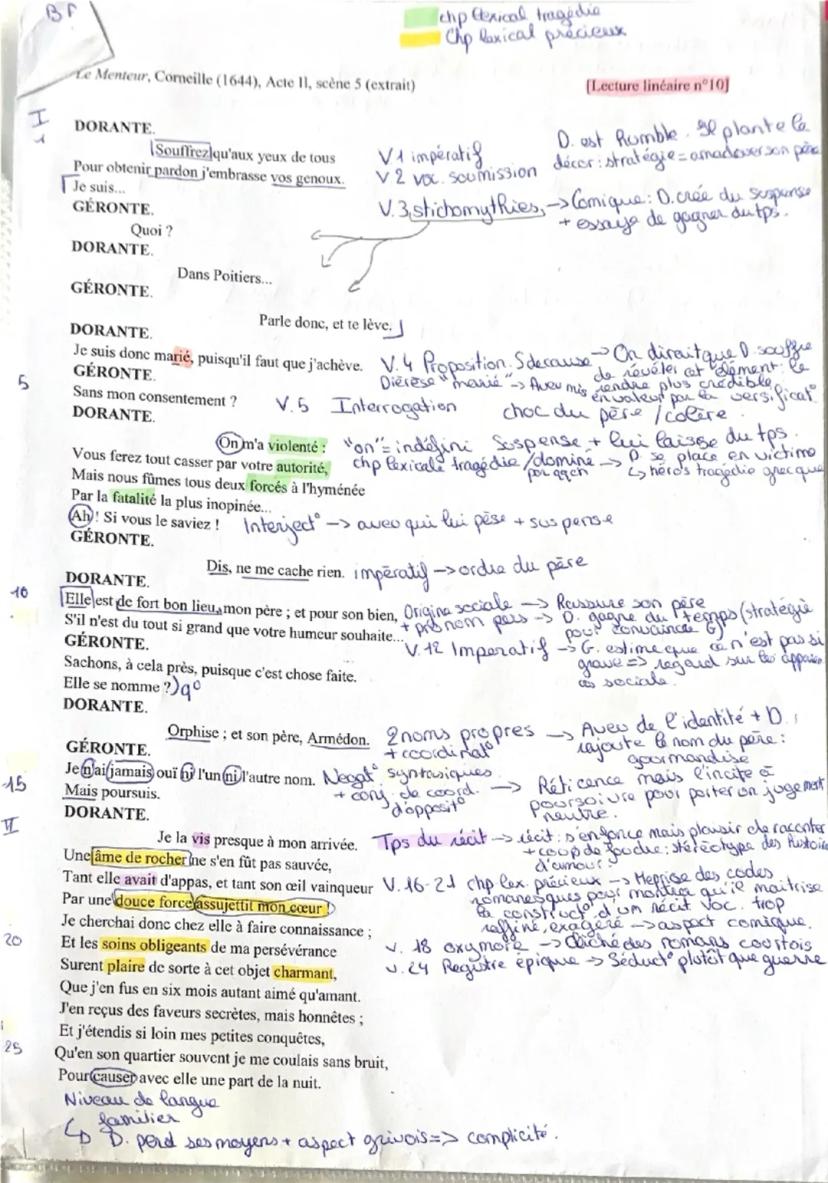 BF
chp lexical tragédie
Chp lexical précieux
Le Menteur, Corneille (1644), Acte II, scène 5 (extrait)
[Lecture linéaire n°10]
I
1
DORANTE.
Souffrez qu'aux yeux de tous
Pour obtenir pardon j'embrasse vos genoux.
Je suis...
V1 impératif
V2 voc. soumission
D. est Humble. Il plante le
décor : stratégie = amadouer son père
GÉRONTE.
Quoi ?
V.3 stichomythies, -> Comique : D. crée du suspense
+ essaye de gagner du tps.
DORANTE.
Dans Poitiers...
GÉRONTE.
Parle donc, et te lève.
DORANTE.
Je suis donc marié, puisqu'il faut que j'achève.
V.4 Proposition. S de cause -> On dirait que D. souffre
de révéler cet élément : le
Diérèse "marié" -> Aveu mis
rendre plus crédible
en valeur par la versificat°
5
GÉRONTE.
Sans mon consentement ?
V.5 Interrogation choc du père / colère.
DORANTE.
On m'a violenté :
"on" = indéfini Suspense + lui laisse du tps.
Vous ferez tout casser par votre autorité,
chp lexicale tragédie / dominé par qqch -> D se place en victime
↳ héros tragédie grecque
Mais nous fûmes tous deux forcés à l'hyménée
Par la fatalité la plus inopinée...
Ah ! Si vous le saviez !
Interject° -> aveu qui lui pèse + suspense
GÉRONTE.
Dis, ne me cache rien.
impératif -> ordre du père
DORANTE.
10
Elle est de fort bon lieu, mon père ; et pour son bien,
S'il n'est du tout si grand que votre humeur souhaite...
Origine sociale -> Rassure son père
+ pronom pers -> D. gagne du temps (stratégie
pour convaincre G)
GÉRONTE.
V.12 Imperatif -> G. estime que ce n'est pas si
grave => regard sur les
sociale.
Sachons, à cela près, puisque c'est chose faite.
Elle se nomme ?
q°
DORANTE.
Orphise ; et son père, Armédon.
2 noms propres
+ coordinat°
-> Aveu de l'identité + D.
rajoute le nom du père :
gourmandise
GÉRONTE.
Je n'ai jamais ouï ni l'un ni l'autre nom.
Negat° syntaxiques
+ conj. de coord.
d'opposit°
-> Réticence mais l'incite à
poursuivre pour porter un jugement
neutre.
15
Mais poursuis.
II
DORANTE.
Je la vis presque à mon arrivée.
Tps du récit -> récit : s'enfonce mais plaisir de raconter
+ coup de foudre : stéréotype des histoires
d'amour
Une âme de rocher ne s'en fût pas sauvée,
Tant elle avait d'appas, et tant son œil vainqueur
Par une douce force assujettit mon cœur !
V.16-21 chp lex. précieux -> Reprise des codes
romanesques pour montrer qu'il maitrise
la construct° d'un récit voc. trop
raffiné, exagéré -> aspect comique.
Je cherchai donc chez elle à faire connaissance ;
20
Et les soins obligeants de ma persévérance
v. 18 oxymore -> Cliché des romans courtois
Surent plaire de sorte à cet objet charmant,
v.24 Registre épique -> Séduct° plutôt que guerre
Que j'en fus en six mois autant aimé qu'amant.
J'en reçus des faveurs secrètes, mais honnêtes ;
Et j'étendis si loin mes petites conquêtes,
25
Qu'en son quartier souvent je me coulais sans bruit,
Pour causer avec elle une part de la nuit.
Niveau de langue
familier
↳ D. perd ses moyens + aspect grivois => complicité.